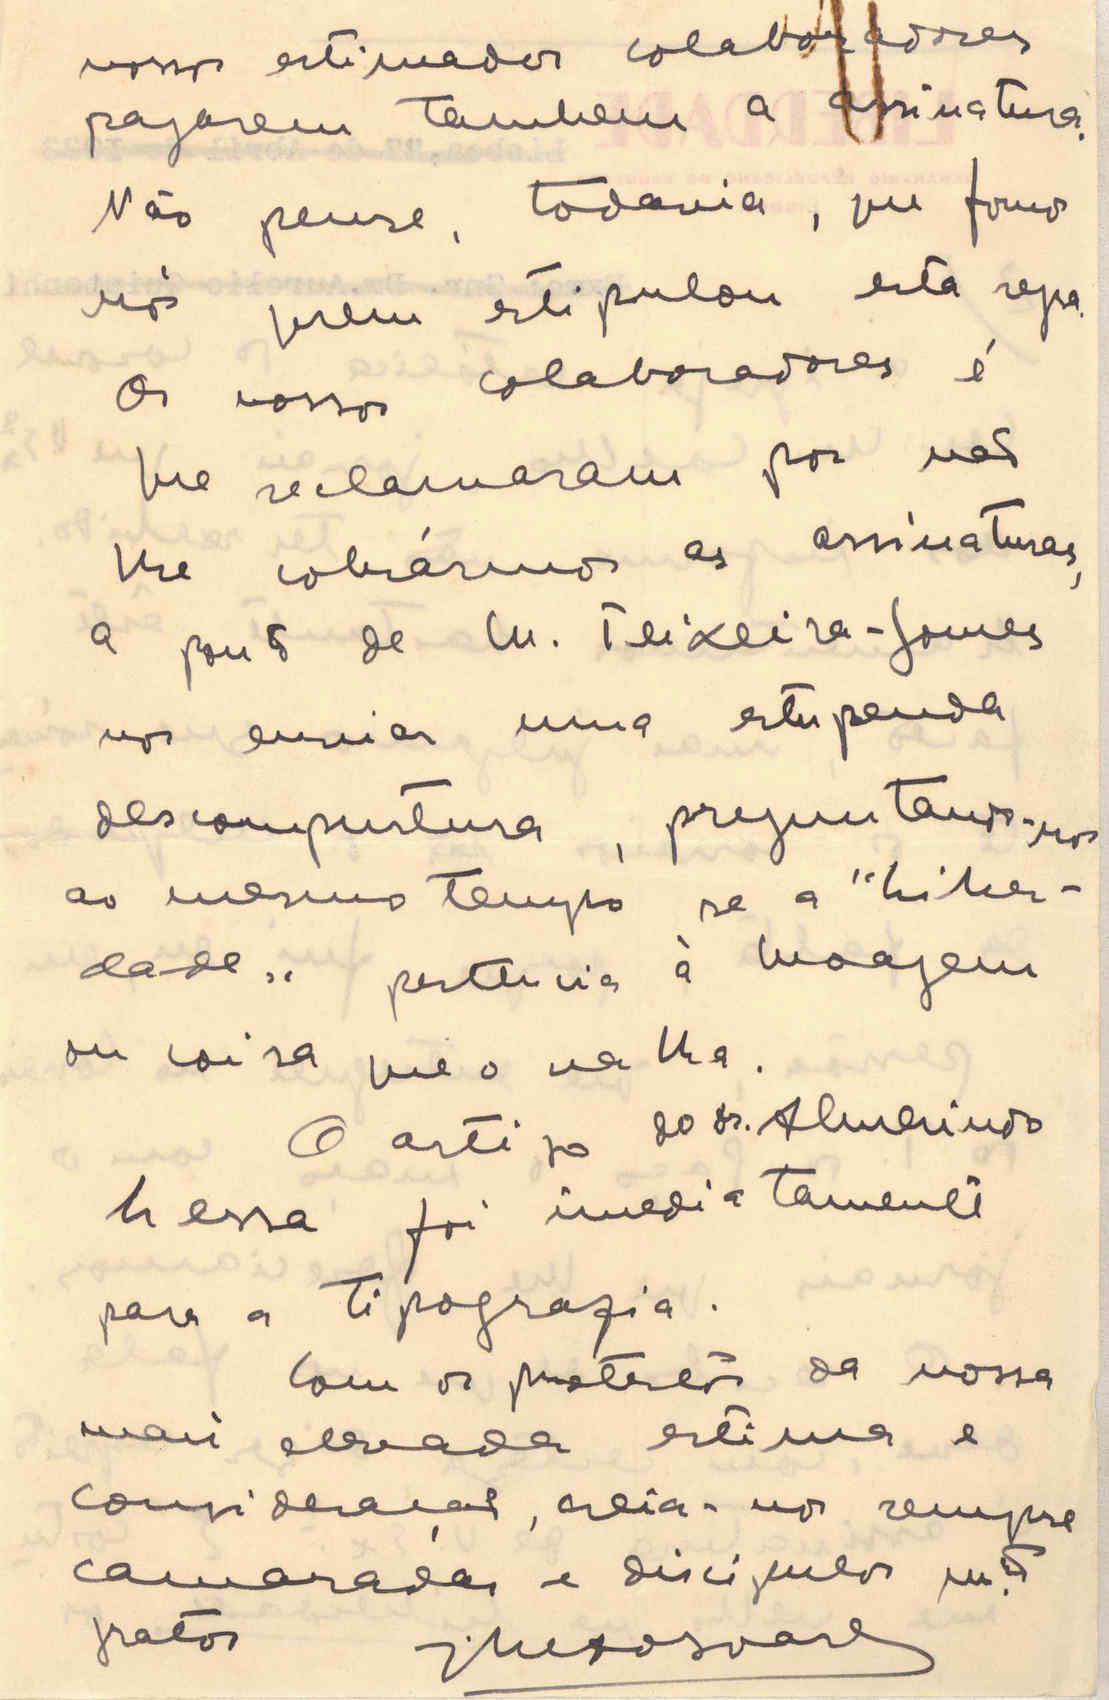 nossos estimados colaboradores
pagarem tambem a assinatura.
Não pense, todavia, que fomos
nós quem estipulou esta regra.
Os nossos colaboradores é
que reclamaram por não
lhe cobrármos as assinaturas,
a ponto de M. Teixeira-Gomes
nos enviar uma estupenda
descompustura, preguntando-nos
ao mesmo tempo se a "Liber-
dade" pertencia à Moagem
ou coisa que o valha.
O artigo do dr. Almerindo
Lessa foi imediatamente
para a tipografia.
Com os protestos da nossa
mais elevada estima e
consideração, creia-nos sempre
camaradas e discipulos m.to
gratos